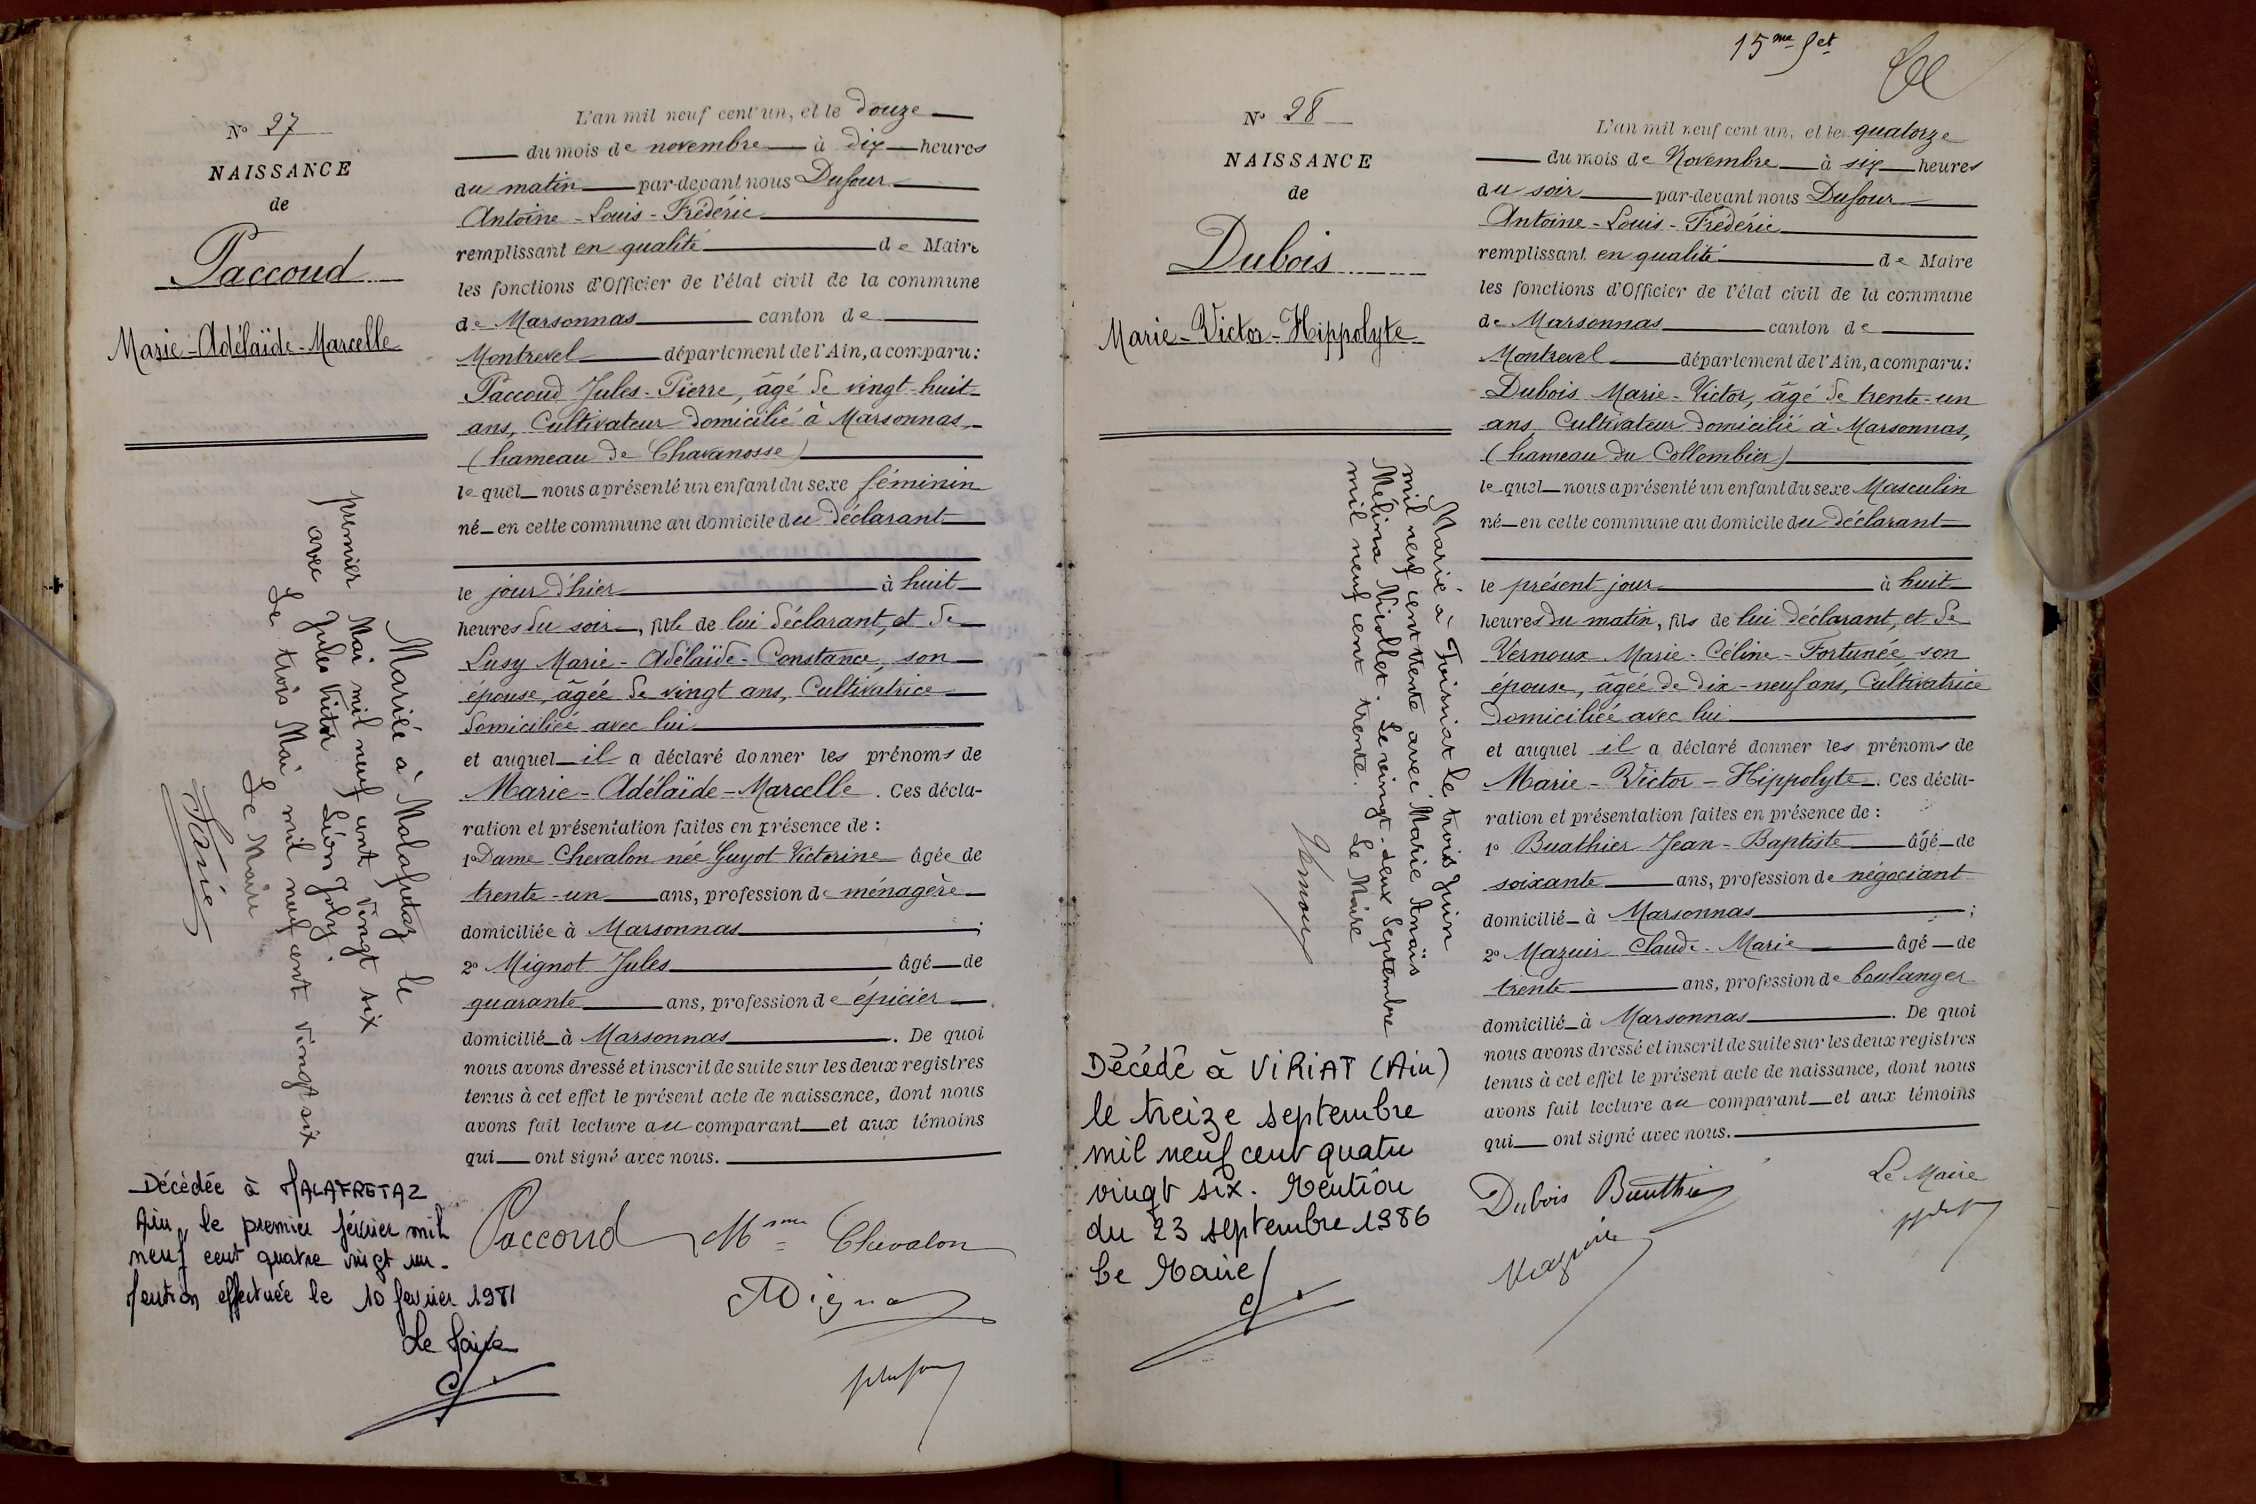 N° 27
NAISSANCE
de
Paccoud
Marie-Adélaïde-Marcelle
L'an mil neuf cent un, et le douze
du mois de novembre à dix heures
du matin par-devant nous Dufour
Antoine-Louis-Frédéric
remplissant en qualité de Maire
les fonctions d'Officier de l'état civil de la commune
de Marsonnas canton de
Montrevel département de l'Ain, a comparu:
Paccoud Jules-Pierre, âgé de vingt-huit
ans, Cultivateur domicilié à Marsonnas,
(hameau de Chavanosse)
lequel nous a présenté un enfant du sexe féminin
né en cette commune au domicile du déclarant
le jour d'hier à huit
heures du soir, fille de lui déclarant, et de
Lusy Marie-Adélaïde-Constance, son
épouse, âgée de vingt ans, Cultivatrice
domiciliée avec lui
et auquel il a déclaré donner les prénoms de
Marie-Adélaïde-Marcelle. Ces décla-
ration et présentation faites en présence de :
1° Dame Chevalon née Guyot Victorine âgée de
trente-un ans, profession de ménagère
domiciliée à Marsonnas ;
2° Mignot Jules âgé de
quarante ans, profession de épicier
domicilié à Marsonnas. De quoi
nous avons dressé et inscrit de suite sur les deux registres
tenus à cet effet le présent acte de naissance, dont nous
avons fait lecture au comparant et aux témoins
qui ont signé avec nous.
Paccoud Mme Chevalon
Mignot
Mariée à Malafretaz le
premier Mai mil neuf cent vingt six
avec Jules Victor Léon Joly.
Le trois Mai mil neuf cent vingt six
Le Maire
Décédée à MALAFRETAZ
Ain, le premier février mil
neuf cent quatre vingt un.
Mention effectuée le 10 février 1981
Le Maire
15me fet
N° 28
NAISSANCE
de
Dubois
Marie-Victor-Hippolyte
L'an mil neuf cent un, et le quatorze
du mois de Novembre à six heures
du soir par-devant nous Dufour
Antoine-Louis-Frédéric
remplissant en qualité de Maire
les fonctions d'Officier de l'état civil de la commune
de Marsonnas canton de
Montrevel département de l'Ain, a comparu:
Dubois Marie-Victor, âgé de trente-un
ans, Cultivateur domicilié à Marsonnas,
(hameau du Collombier)
lequel nous a présenté un enfant du sexe Masculin
né en cette commune au domicile du déclarant
le présent jour à huit
heures du matin, fils de lui déclarant, et de
Vernoux Marie-Céline-Fortunée son
épouse, âgée de dix-neuf ans, Cultivatrice
domiciliée avec lui
et auquel il a déclaré donner les prénoms de
Marie-Victor-Hippolyte. Ces décla-
ration et présentation faites en présence de :
1° Buathier Jean-Baptiste âgé de
soixante ans, profession de négociant
domicilié à Marsonnas ;
2° Mazuir Claude-Marie âgé de
trente ans, profession de boulanger
domicilié à Marsonnas. De quoi
nous avons dressé et inscrit de suite sur les deux registres
tenus à cet effet le présent acte de naissance, dont nous
avons fait lecture au comparant et aux témoins
qui ont signé avec nous.
Le Maire
Dubois Buathier
Mazuir
Marié à Foissiat le trois Juin
mil neuf cent trente avec Marie Anaïs
Mélina Niollet. Le vingt-deux Septembre
mil neuf cent trente. Le Maire
Décédé à VIRIAT (Ain)
le treize septembre
mil neuf cent quatre
vingt six. Mention
du 23 septembre 1986
Le Maire